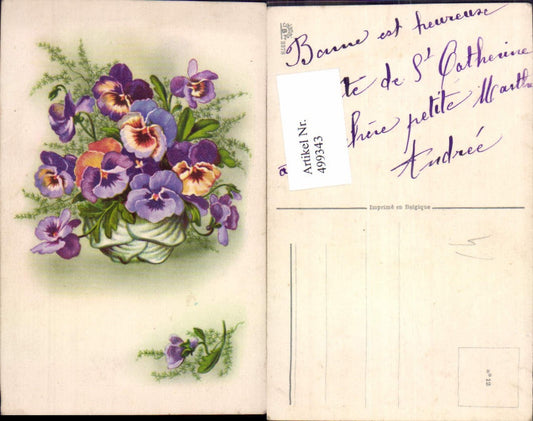 Bonne est heureuse
té de St Catherine
petite Marth
Andrée
Artikel Nr.
499343
Imprimé en Belgique
n° 12